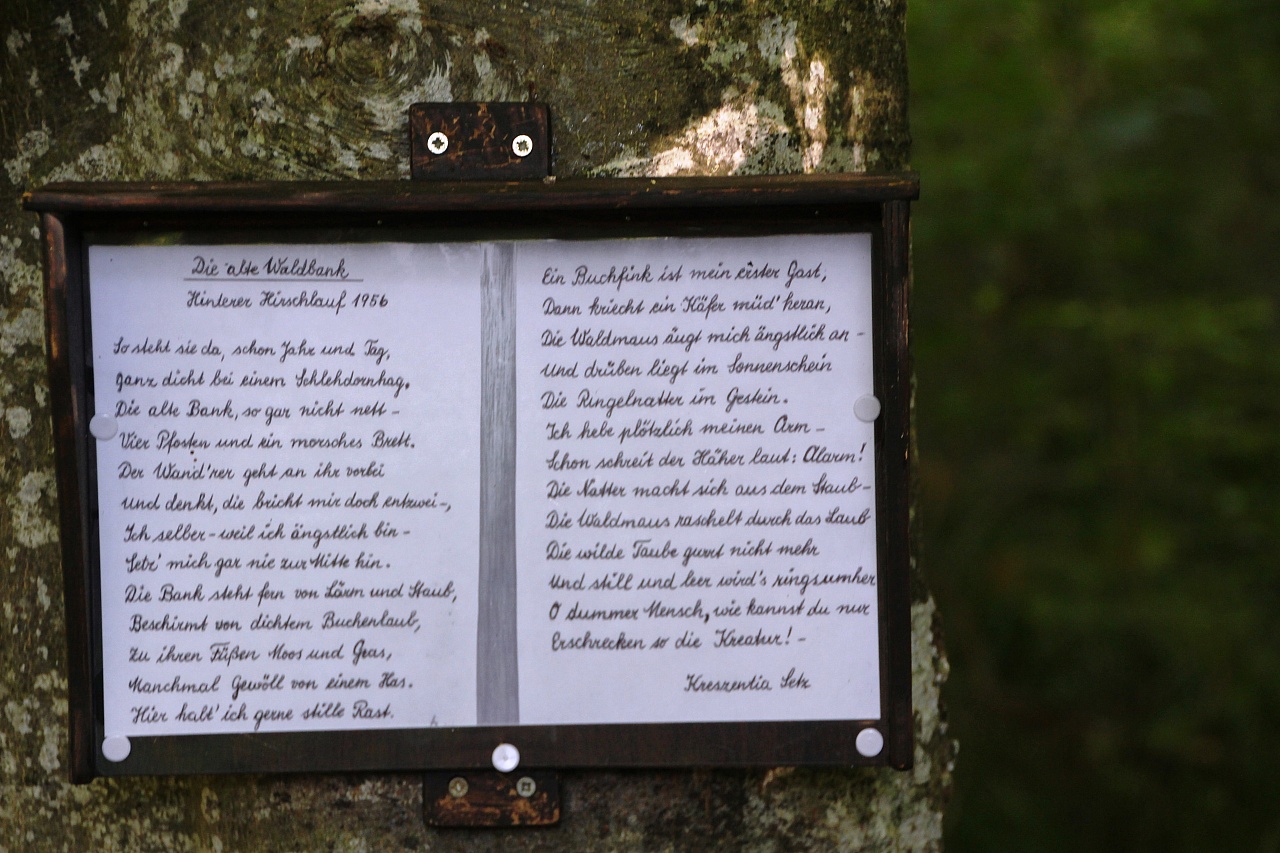 Die alte Waldbank
Hinterer Hirschlauf 1956
So steht sie da, schon Jahr und Tag,
ganz dicht bei einem Schlehdornhag.
Die alte Bank, so gar nicht nett -
Vier Pfosten und ein morsches Brett.
Der Wand'rer geht an ihr vorbei
und denkt, die bricht mir doch entzwei -,
Ich selber - weil ich ängstlich bin -
Setz' mich gar nie zur Mitte hin.
Die Bank steht fern von Lärm und Staub,
Beschirmt von dichtem Buchenlaub,
Zu ihren Füßen Moos und Gras,
Manchmal Gewöll von einem Has.
Hier halt' ich gerne stille Rast.
Ein Buchfink ist mein erster Gast,
Dann kriecht ein Käfer müd' heran,
Die Waldmaus äugt mich ängstlich an -
Und drüben liegt im Sonnenschein
Die Ringelnatter im Gestein.
Ich hebe plötzlich meinen Arm -
Schon schreit der Häher laut: Alarm!
Die Natter macht sich aus dem Staub -
Die Waldmaus raschelt durch das Laub
Die wilde Taube gurrt nicht mehr
Und still und leer wird's ringsumher
O dummer Mensch, wie kannst du nur
Erschrecken so die Kreatur! -
Kreszentia Setz